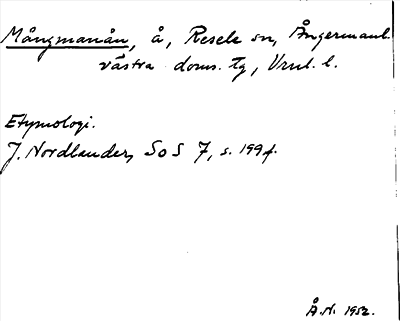 Mångmanån, å, Resele sn, Ångermanl.
västra doms. tg, Vrnl. l.
Etymologi.
J. Nordlander, SoS 7, s. 199 f.
Å.N. 1952.